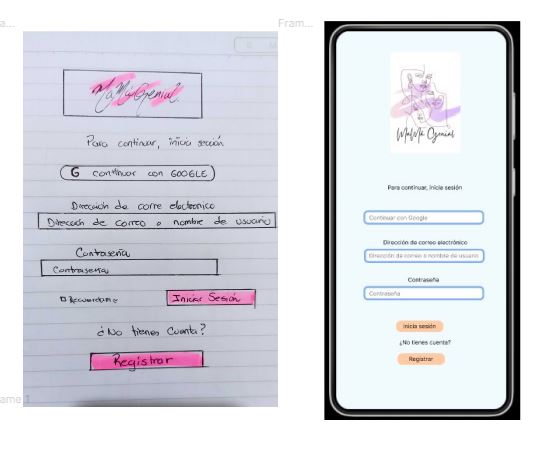 Fram...
MaMá Genial.
Para continuar, inicia sección
G continuar con GOOGLE
Dirección de corre electronico
Dirección de correo o nombre de usuario
Contraseña
Contraseña
Recuerdame
Iniciar Sesión
¿No tienes Cuenta?
Registrar
ame 1
MaMá Genial
Para continuar, inicie sesión
Continuar con Google
Dirección de correo electrónico
Dirección de correo o nombre de usuario
Contraseña
Contraseña
Inicia sesión
¿No tienes cuenta?
Registrar